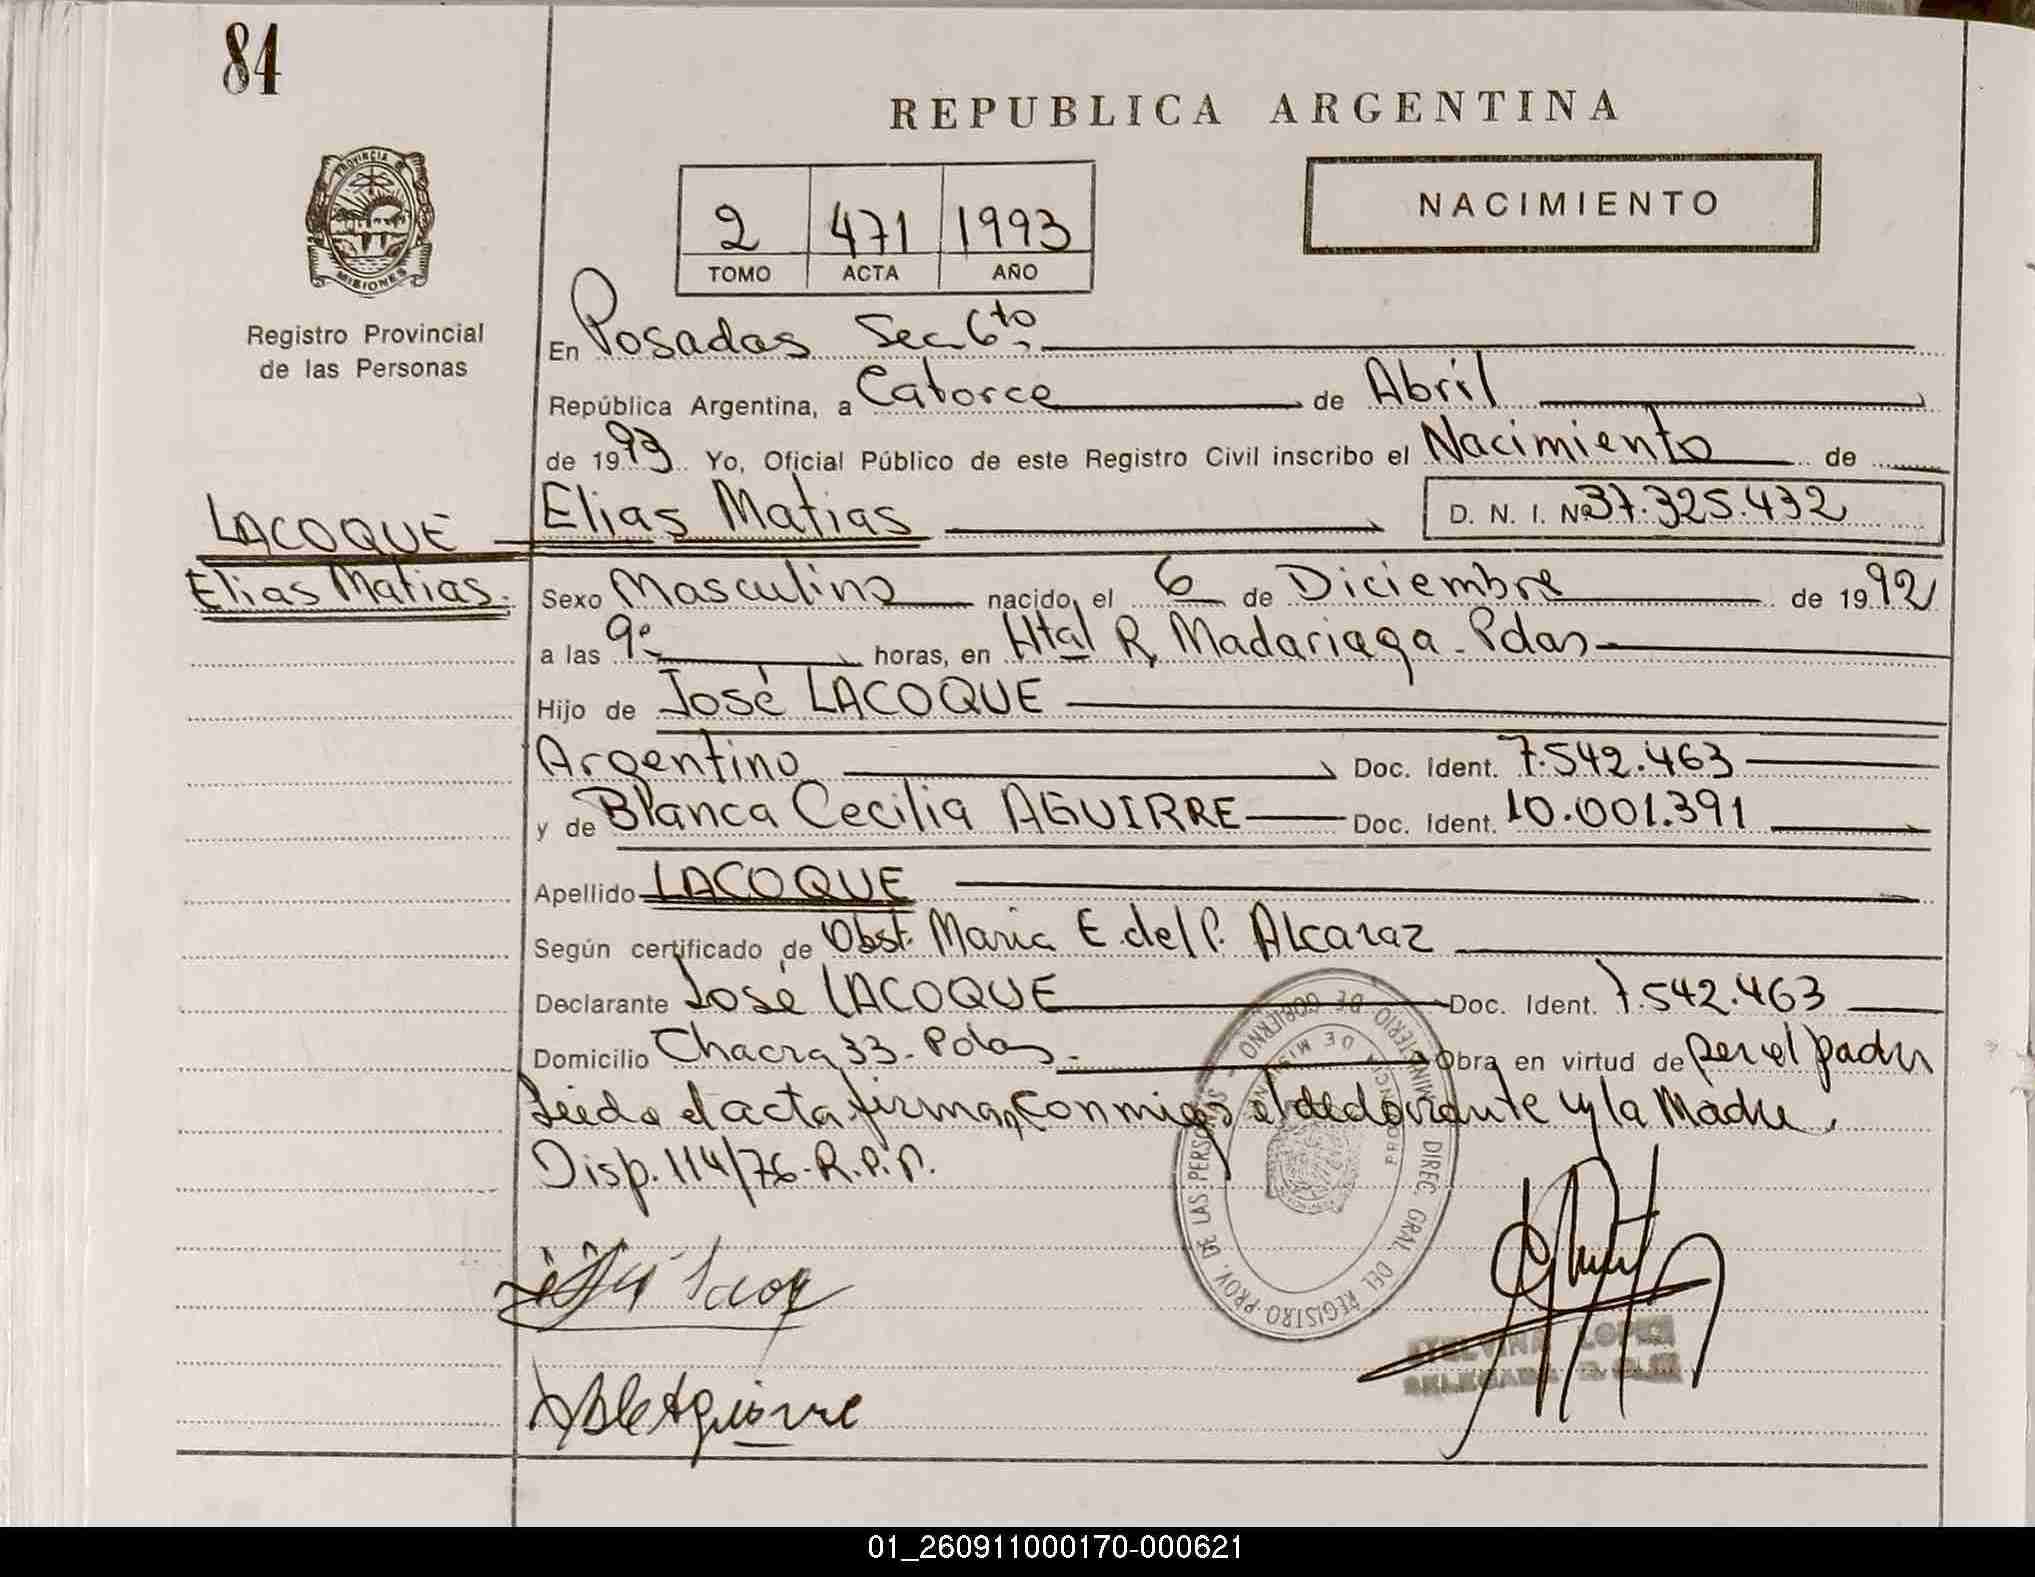 84
REPUBLICA ARGENTINA
PROVINCIA D MISIONES
NACIMIENTO
2 471 1993
TOMO ACTA AÑO
Registro Provincial
de las Personas
En Posadas Sec. 6to.
República Argentina, a Catorce de Abril
de 1993. Yo, Oficial Público de este Registro Civil inscribo el Nacimiento de
LACOQUE
Elias Matias.
Elias Matias D. N. I. Nº 37.325.432
Sexo Masculino nacido el 6 de Diciembre de 1992
a las 9.- horas, en Htal R. Madariaga - Pdas
Hijo de José LACOQUE
Argentino Doc. Ident. 7.542.463
y de Blanca Cecilia AGUIRRE Doc. Ident. 10.001.391
Apellido LACOQUE
Según certificado de Obst. Maria E. del P. Alcaraz
Declarante José LACOQUE Doc. Ident. 7.542.463
Domicilio Chacra 33 - Pdas - Obra en virtud de ser el padre
Leida el acta firman conmigo el declarante y la Madre.
Disp. 114/76 - R.P.P.
DIREC. GRAL. DEL REGISTRO PROV. DE LAS PERSONAS
MINISTERIO DE GOBIERNO
PROVINCIA DE MISIONES
Aguirre
01_260911000170-000621